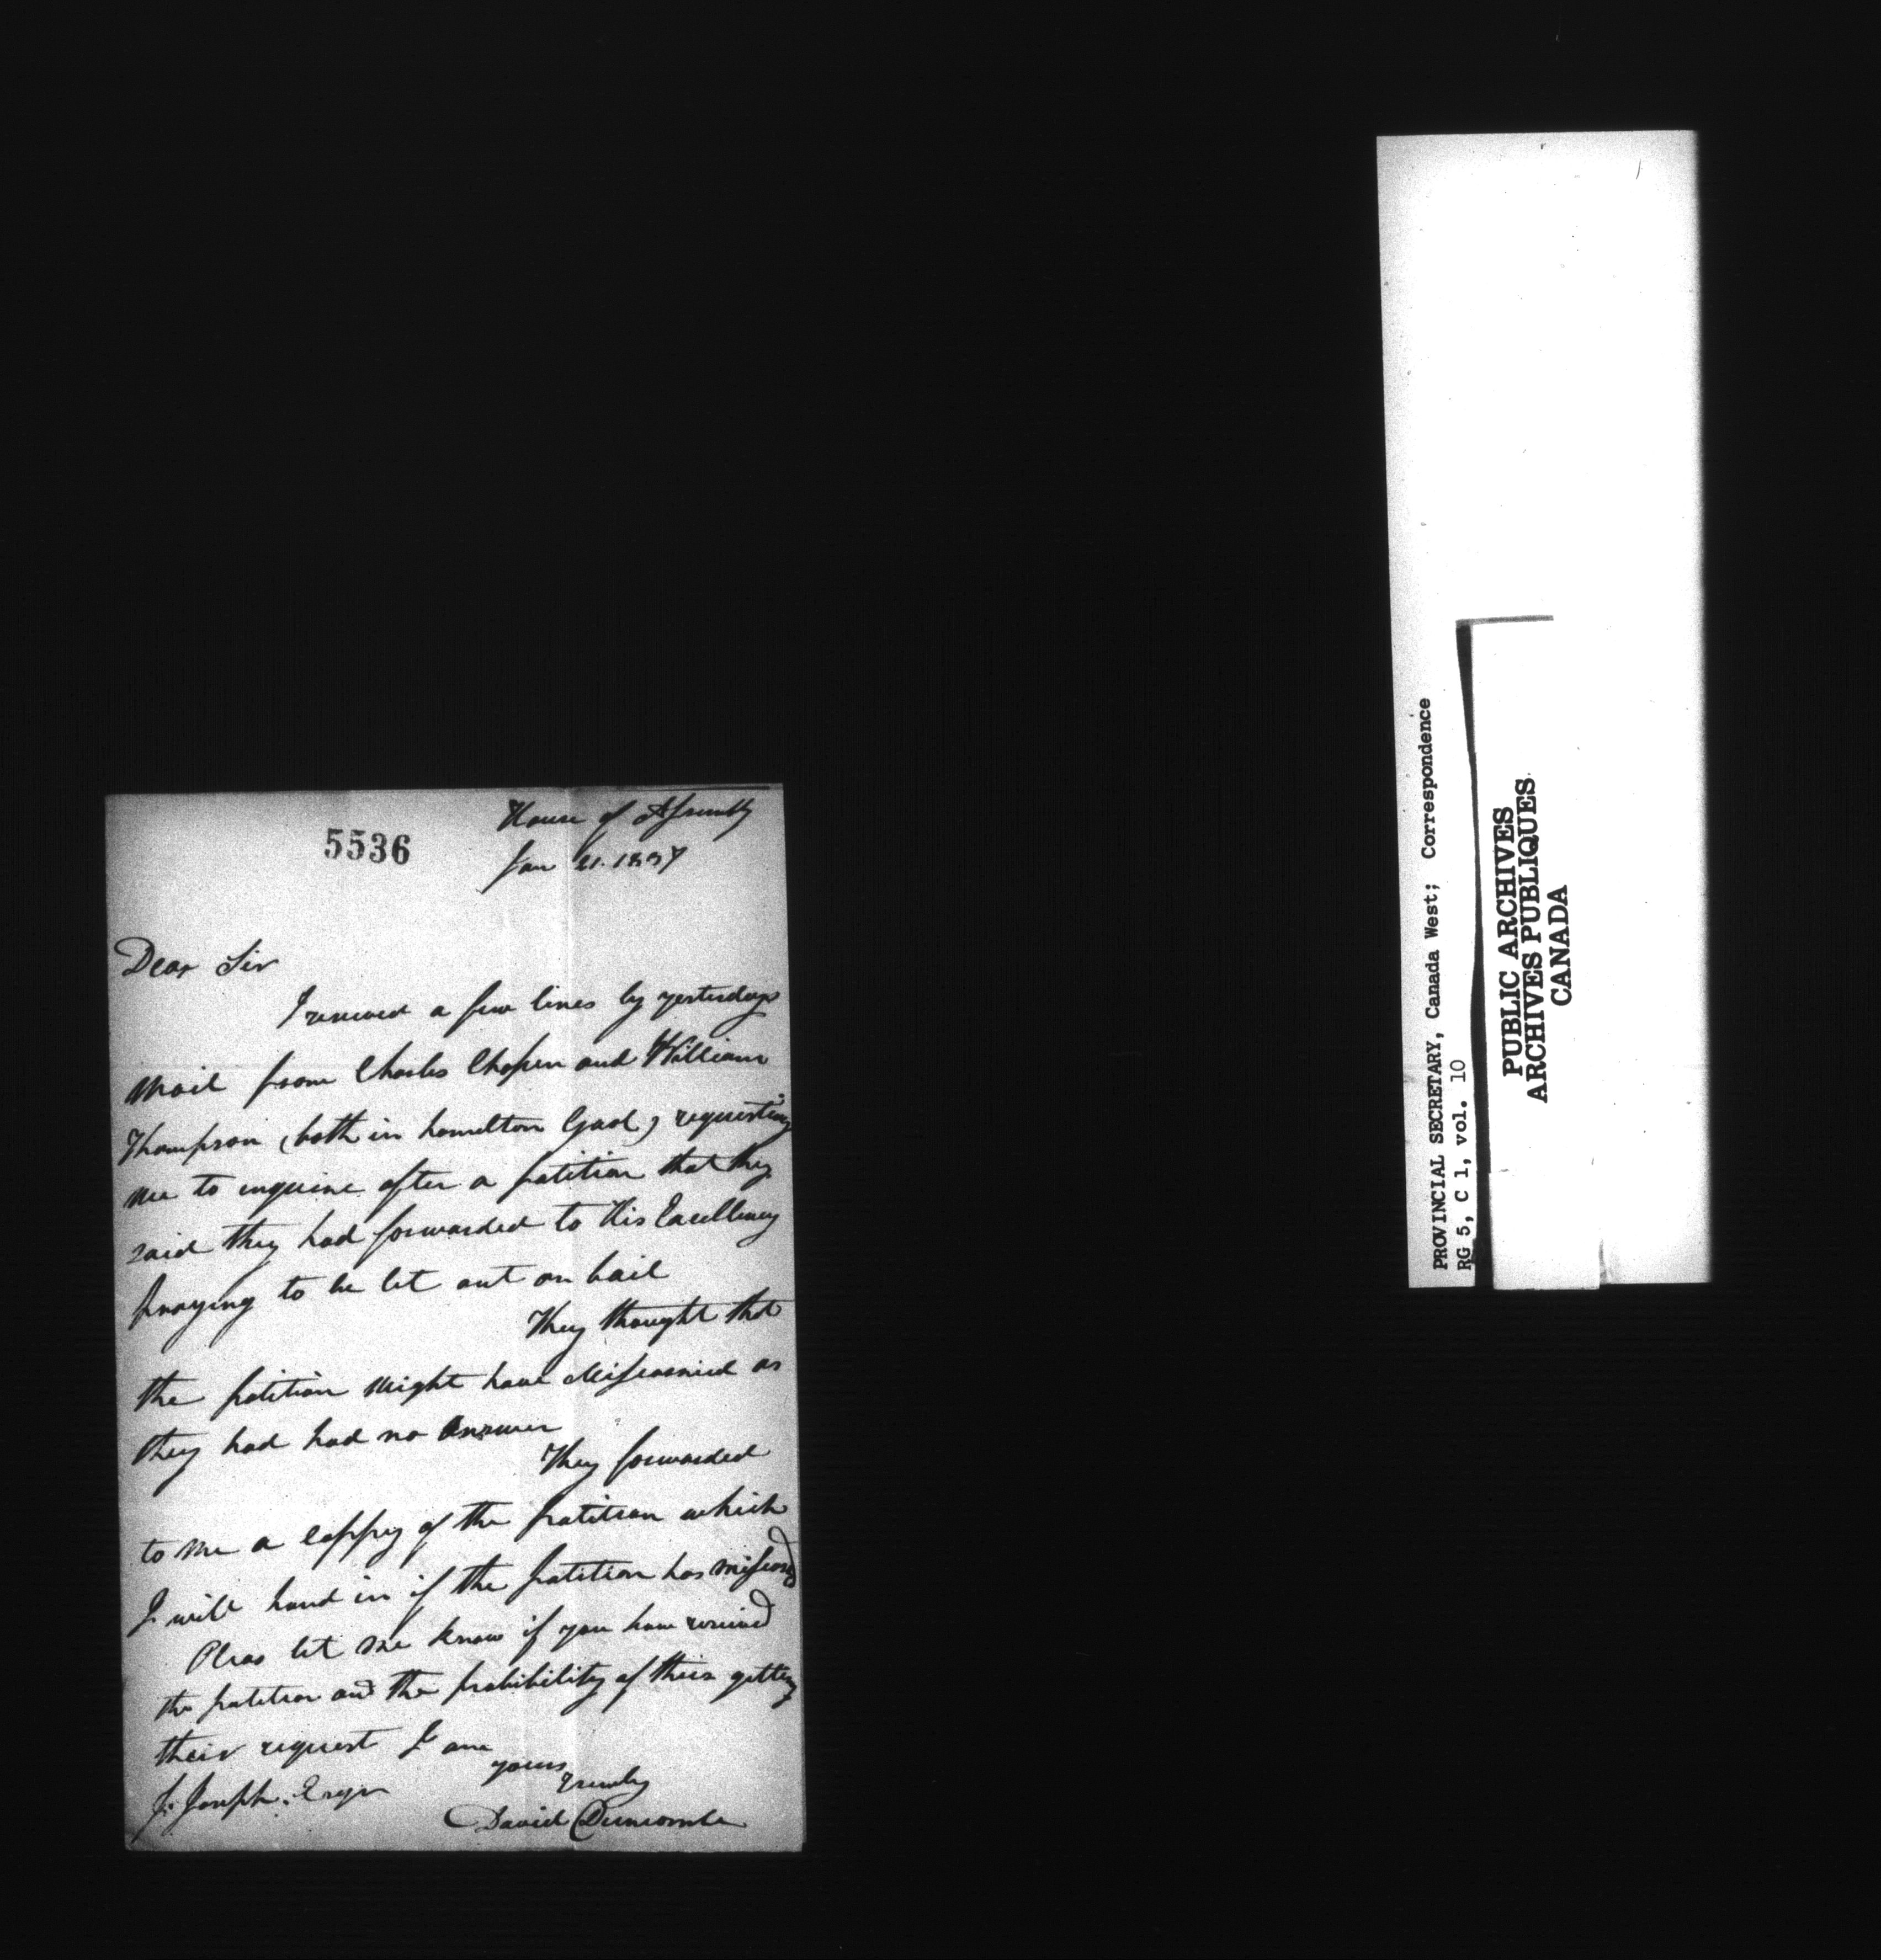 5536
House of Assembly
Jan 21. 1837
Dear Sir
I received a few lines by yesterdays
Mail from Charles Chapin and William
Thompson (both in hamelton Gaol) requesting
me to enquire after a patition that they
said they had forwarded to His Excellency
praying to be let out on bail
They thought that
the patition might have Miscarried as
they had had no Answer
They forwarded
to me a Coppy of the patition which
I will hand in if the patition has
Pleas let me know if you have received
the patition and the probibility of their getting
their request I am
yours
J. Joseph. Esqr
David Duncombe
PROVINCIAL SECRETARY, Canada West; Correspondence
RG 5, C 1, vol. 10
PUBLIC ARCHIVES
ARCHIVES PUBLIQUES
CANADA